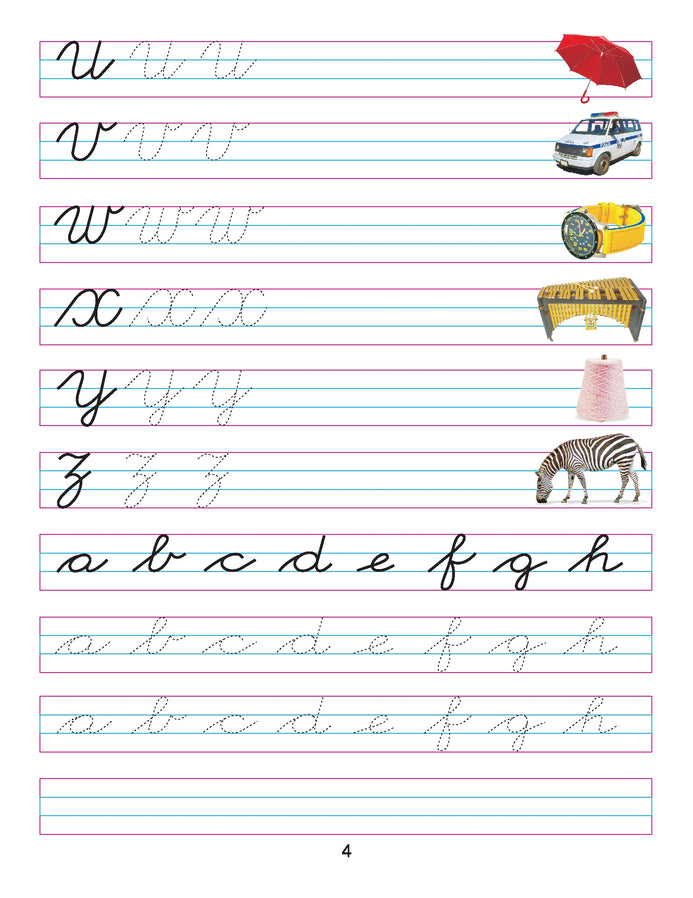 u u u
v v v
w w w
x x x
y y y
z z z
a b c d e f g h
a b c d e f g h
a b c d e f g h
4